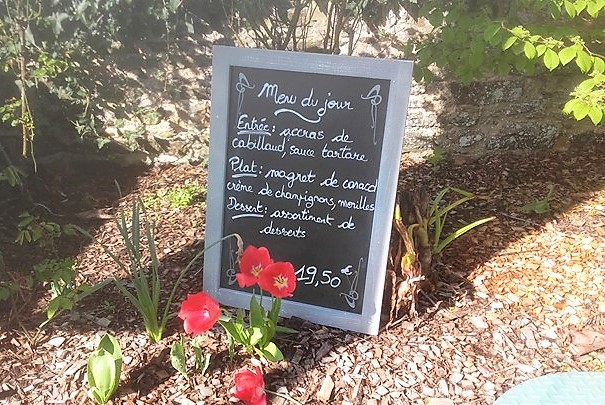 Menu du jour
Entrée : accras de
cabillaud, sauce tartare
Plat : magret de canard
crème de champignons, morilles
Dessert : assortiment de
desserts
19,50 €